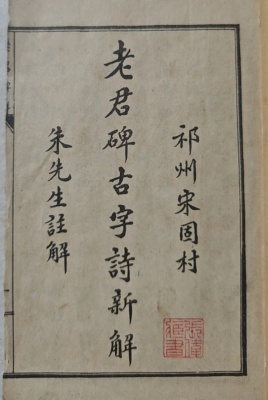 祁州宋固村
老君碑古字詩新解
朱先生註解